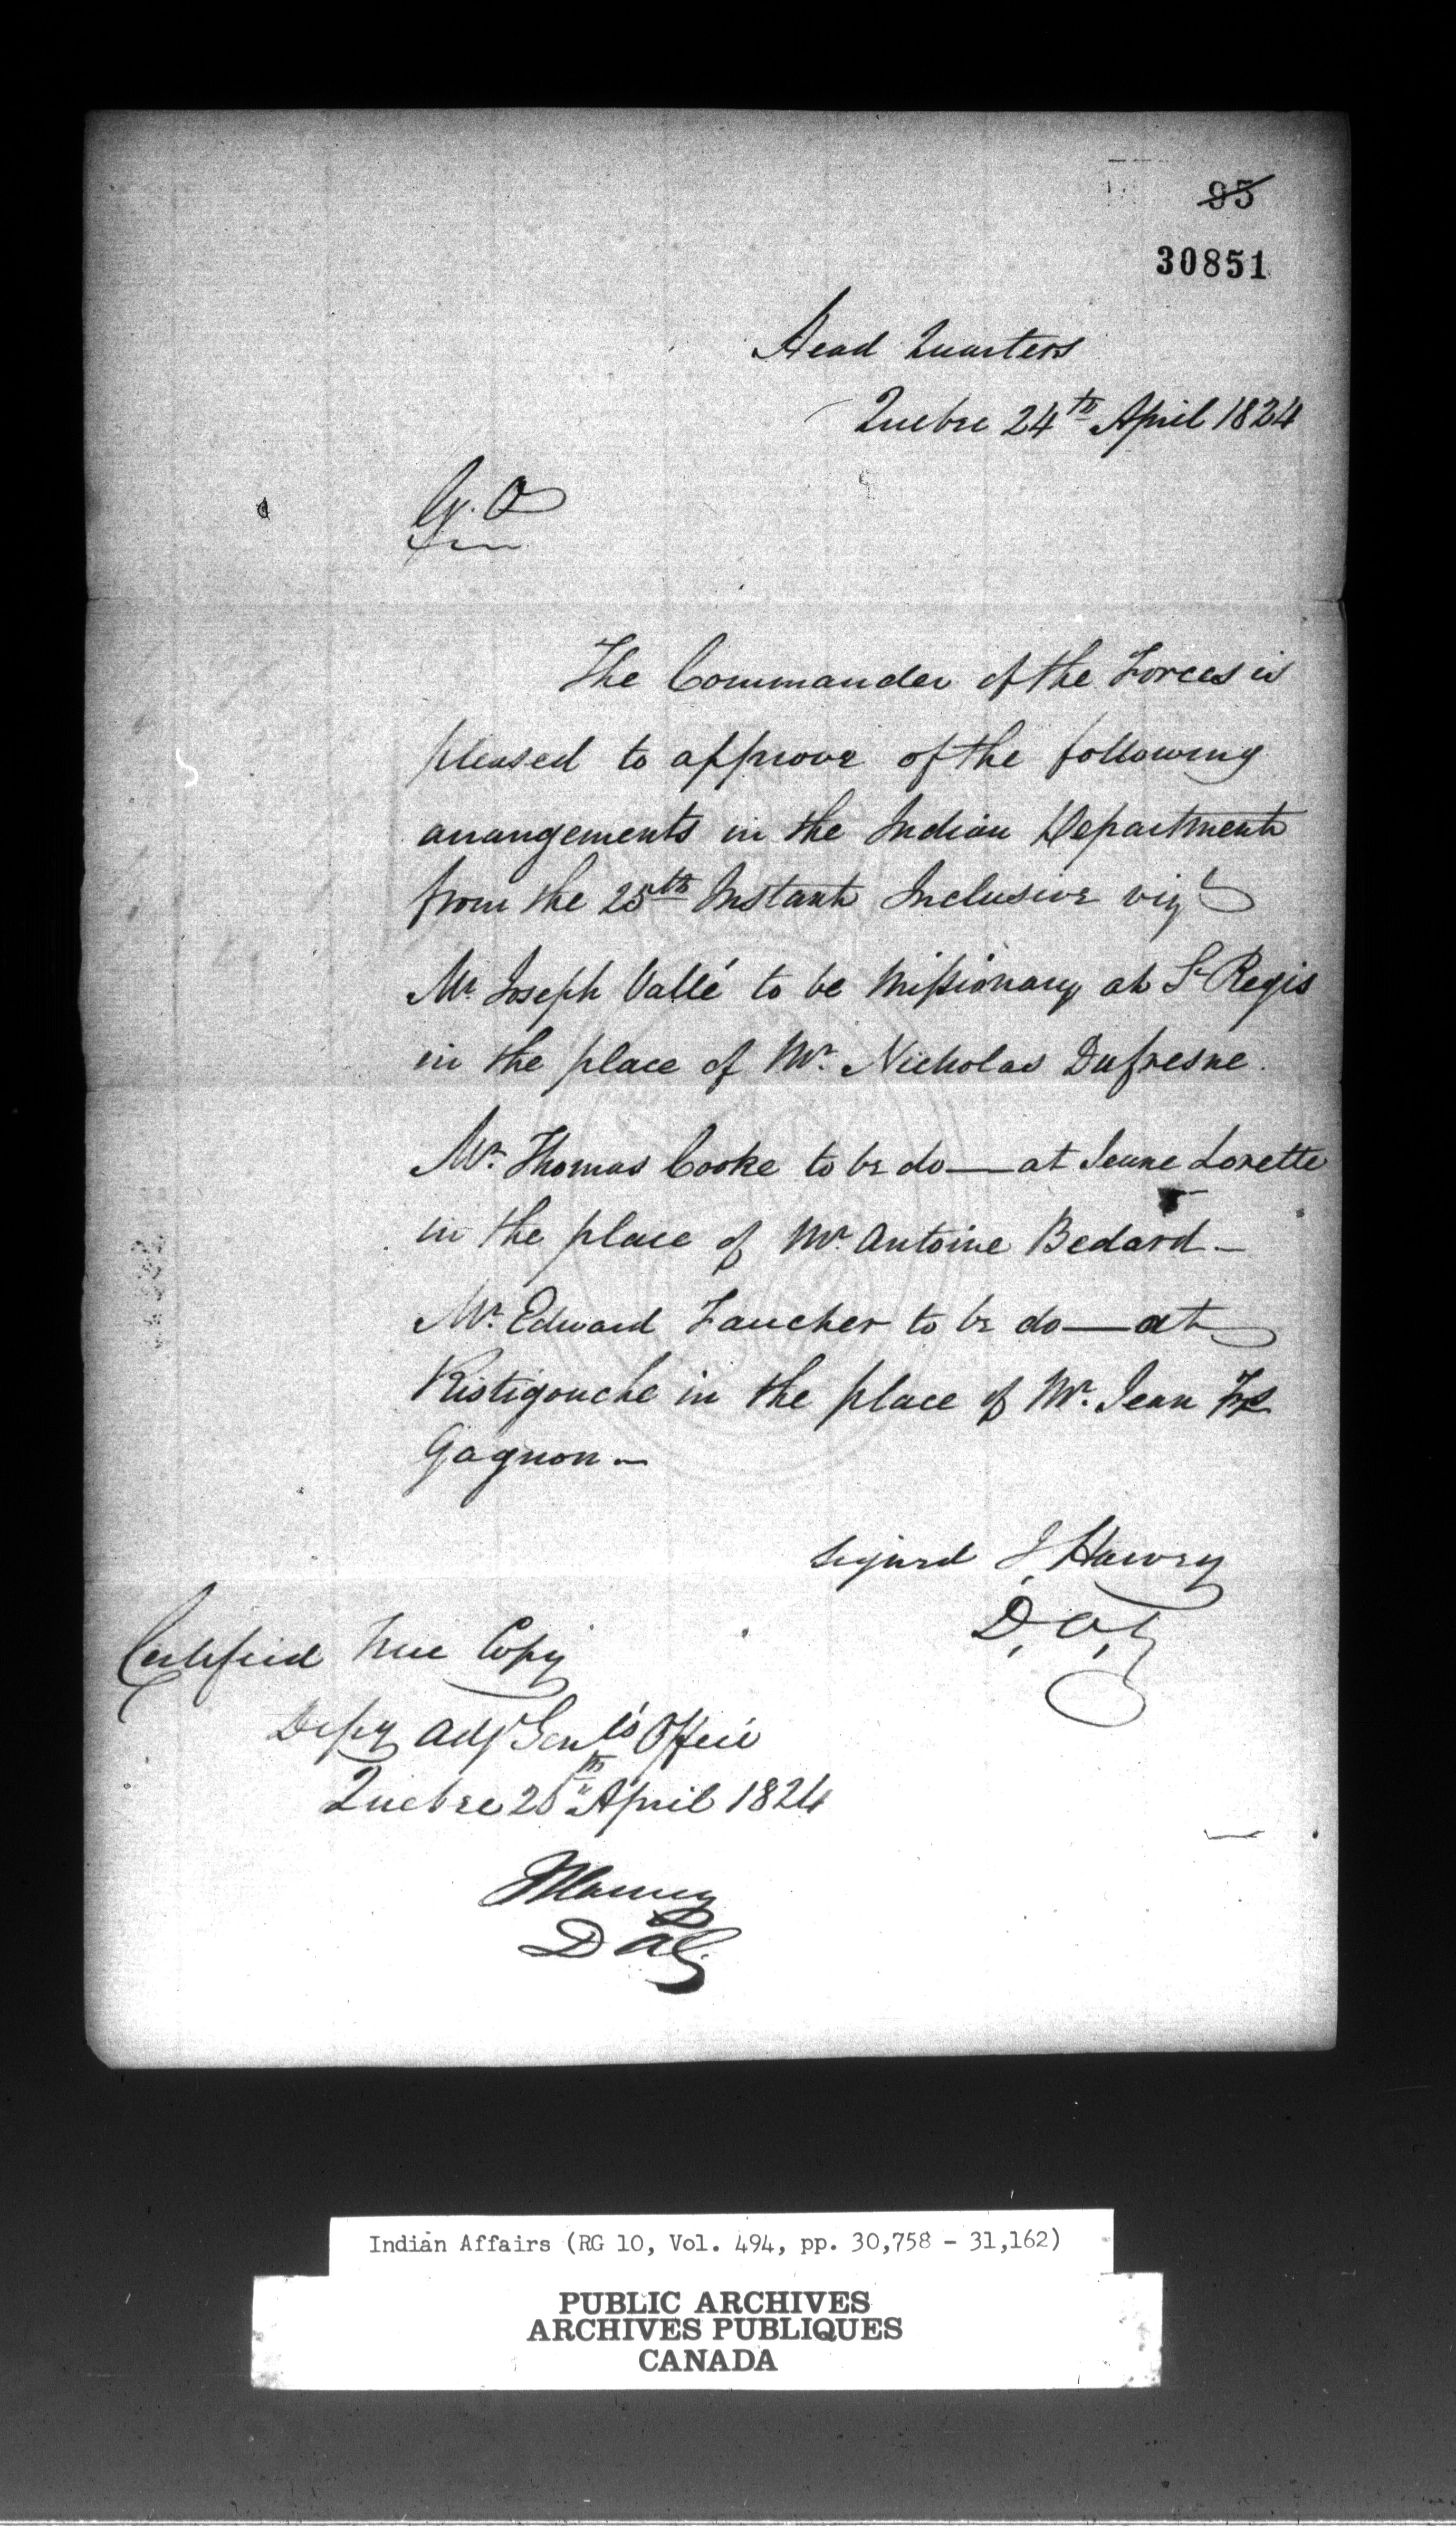 95
30851
Head Quarters
Quebec 24th April 1824
G. O
The Commander of the Forces is
pleased to approve of the following
arrangements in the Indian Department
from the 25th Instant Inclusive viz
Mr. Joseph Vallé to be Missionary at St Regis
in the place of Mr. Nicholas Dufresne.
Mr. Thomas Cooke to be do — at Jeune Lorette
in the place of Mr. Antoine Bedard —
Mr. Edward Faucher to be do — at
Ristigouche in the place of Mr. Jean Frs
Gagnon —
Signed J. Harvey
D. A. G
Certified True Copy
Depy Adjt Genl's Office
Quebec 26th April 1824
JHarvey
D A G.
Indian Affairs (RG 10, Vol. 494, pp. 30,758 - 31,162)
PUBLIC ARCHIVES
ARCHIVES PUBLIQUES
CANADA